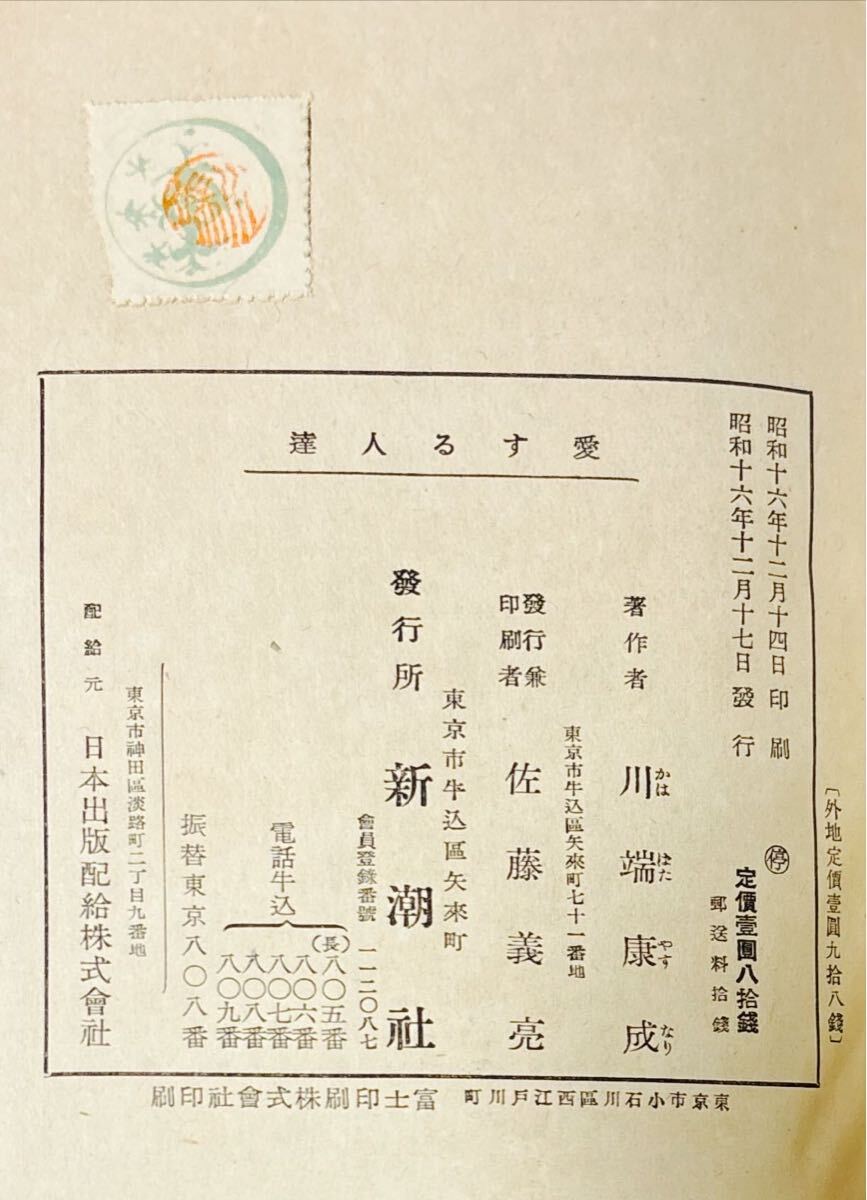 〔外地定價壹圓九拾八錢〕
愛する人達
昭和十六年十二月十四日 印刷
昭和十六年十二月十七日 發行
停 定價壹圓八拾錢
郵送料拾錢
著作者 川端康成
かは ばた やす なり
東京市牛込區矢來町七十一番地
發行兼
印刷者 佐藤義亮
東京市牛込區矢來町
發行所 新潮社
會員登錄番號 一一二〇八七
電話牛込
(長)八〇五番
八〇六番
八〇七番
八〇八番
八〇九番
振替東京八〇八番
東京市神田區淡路町二丁目九番地
配給元 日本出版配給株式會社
東京市小石川區西江戸川町 富士印刷株式會社印刷